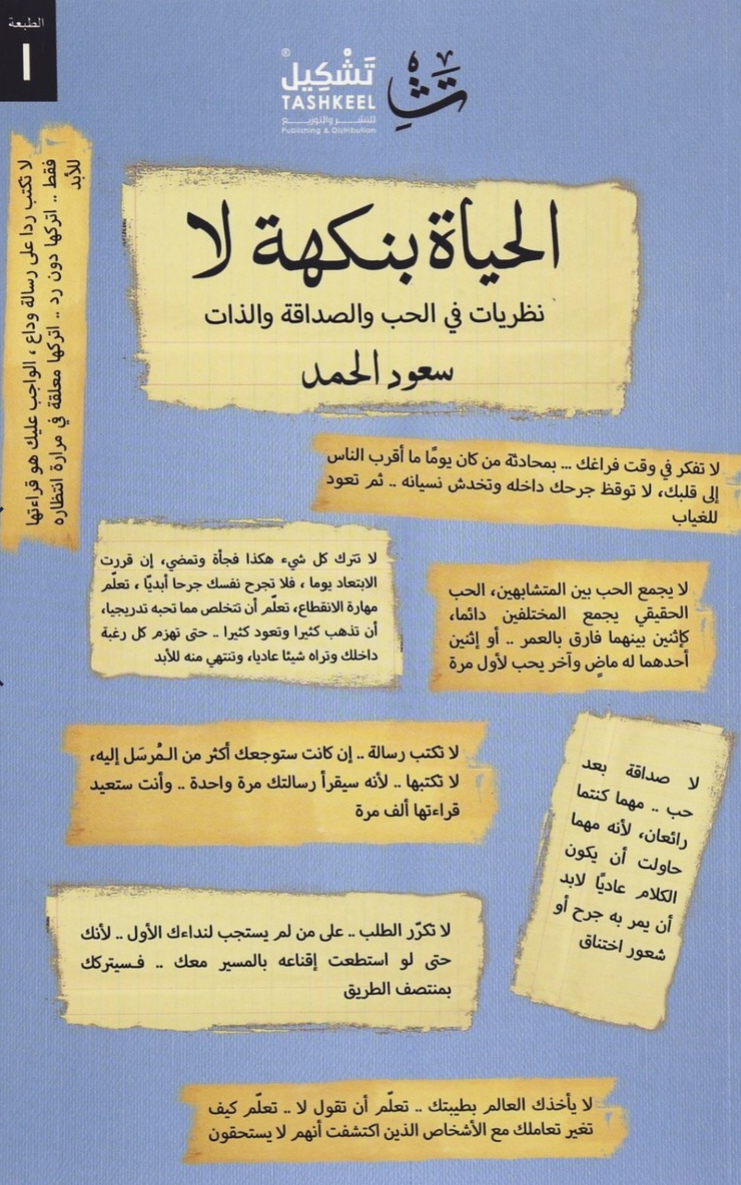 الطبعة
١
تَشْكِيل
TASHKEEL
للنشر والتوزيع
Publishing & Distribution
الحياة بنكهة لا
نظريات في الحب والصداقة والذات
سعود الحمد
لا تكتب ردا على رسالة وداع ، الواجب عليك هو قراءتها
فقط .. اتركها دون رد .. اتركها معلقة في مرارة انتظاره
للأبد
لا تفكر في وقت فراغك ... بمحادثة من كان يومًا ما أقرب الناس
إلى قلبك، لا توقظ جرحك داخله وتخدش نسيانه .. ثم تعود
للغياب
لا تترك كل شيء هكذا فجأة وتمضي، إن قررت
الابتعاد يوما ، فلا تجرح نفسك جرحا أبديًا ، تعلّم
مهارة الانقطاع، تعلّم أن تتخلص مما تحبه تدريجيا،
أن تذهب كثيرا وتعود كثيرا .. حتى تهزم كل رغبة
داخلك وتراه شيئا عاديا، وتنتهي منه للأبد
لا يجمع الحب بين المتشابهين، الحب
الحقيقي يجمع المختلفين دائما،
كإثنين بينهما فارق بالعمر .. أو إثنين
أحدهما له ماضٍ وآخر يحب لأول مرة
لا تكتب رسالة .. إن كانت ستوجعك أكثر من المُرسَل إليه،
لا تكتبها .. لأنه سيقرأ رسالتك مرة واحدة .. وأنت ستعيد
قراءتها ألف مرة
لا صداقة بعد
حب .. مهما كنتما
رائعان، لأنه مهما
حاولت أن يكون
الكلام عاديًا لابد
أن يمر به جرح أو
شعور اختناق
لا تكرّر الطلب .. على من لم يستجب لنداءك الأول .. لأنك
حتى لو استطعت إقناعه بالمسير معك .. فسيتركك
بمنتصف الطريق
لا يأخذك العالم بطيبتك .. تعلّم أن تقول لا .. تعلّم كيف
تغير تعاملك مع الأشخاص الذين اكتشفت أنهم لا يستحقون